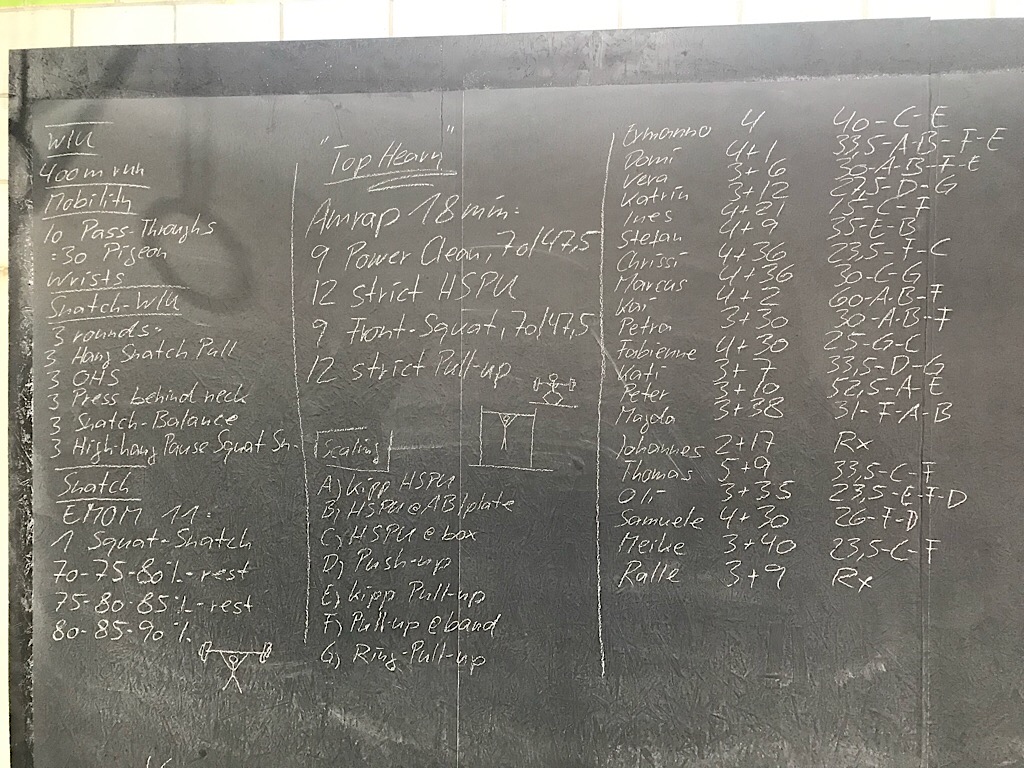 W/U
400m run
Mobility
10 Pass-Throughs
:30 Pigeon
wrists
Snatch-W/U
3 rounds:
3 Hang Snatch Pull
3 OHS
3 Press behind neck
3 Snatch-Balance
3 High hang Pause Squat Sn.
Snatch
EMOM 11:
1 Squat-Snatch
70-75-80%-rest
75-80-85%-rest
80-85-90%
"Top Heavy"
Amrap 18 min:
9 Power Clean, 70/47,5
12 strict HSPU
9 Front-Squat, 70/47,5
12 strict Pull-up
Scaling
A) Kipp HSPU
B) HSPU @ AB/plate
C) HSPU @ box
D) Push-up
E) Kipp Pull-up
F) Pull-up @ band
G) Ring-Pull-up
Ermanno 4 40-C-E
Domi 4+1 33,5-A-B-F-E
Vera 3+6 30-A-B-F-E
Katrin 3+12 27,5-D-G
Ines 4+21 15-C-F
Stefan 4+9 35-E-B
Chrissi 4+36 23,5-F-C
Marcus 4+36 30-C-G
Kai 4+2 60-A-B-F
Petra 3+30 30-A-B-F
Fabienne 4+30 25-G-C
Kati 3+7 33,5-D-G
Peter 3+10 52,5-A-E
Magda 3+38 31-F-A-B
Johannes 2+17 Rx
Thomas 5+9 33,5-C-F
Oli 3+35 23,5-E-F-D
Samuele 4+30 26-F-D
Meike 3+40 23,5-C-F
Ralle 3+9 Rx